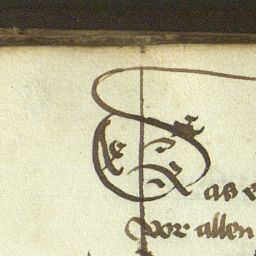 Das
vor allen